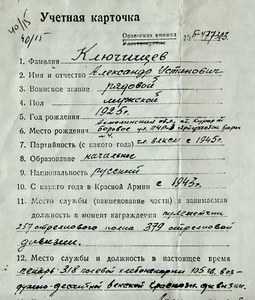 40/15
Учетная карточка
40/15
Орденская книжка
Удостоверение
№
1. Фамилия Ключищев
2. Имя и отчество Александр Устинович
3. Воинское звание рядовой
4. Пол мужской
5. Год рождения 1925 г.
6. Место рождения Акмолинская обл., ст. Курорт
Боровое
7. Партийность (с какого года) чл. ВЛКСМ с 1945 г.
8. Образование начальное
9. Национальность русский
10. С какого года в Красной Армии с 1943 г.
11. Место службы (наименование части) и занимаемая
должность в момент награждения пулеметчик
1257 стрелкового полка 379 стрелковой
дивизии.
12. Место службы и должность в настоящее время
пекарь 318 полевой хлебопекарни 105 гв. воз-
душно-десантной венской Краснозн. дивизии.